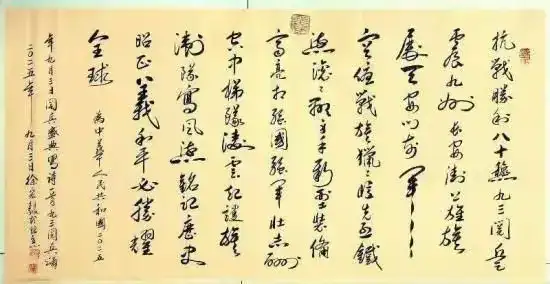 抗戰勝利八十九三閱兵
震九州長安街雄旗
天安前軍
伍戰旗獵獵鐵
流滾滾新型裝備
高亮相強國強軍壯志酬
空中梯隊凌雲起護旗
衛隊寫風流銘記歷史
昭正義和平必勝耀
全球
為中華人民共和國二〇二五
年九月三日閱兵盛典寫詩一首九三閱兵
二〇二五年九月三日徐